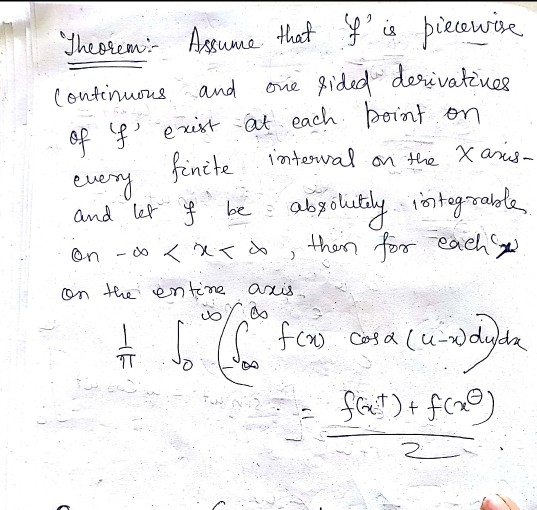 Theorem:- Assume that 'f' is piecewise
continuous and one sided derivatives
of 'f' exist at each point on
every finite interval on the X axis-
and let f be absolutely integrable
on -∞ < x < ∞, then for each 'x'
on the entire axis.
1/π ∫₀^∞ (∫_{-∞}^∞ f(x) cos α (u-x) du) dx
= f(x⁺) + f(x⁻) / 2